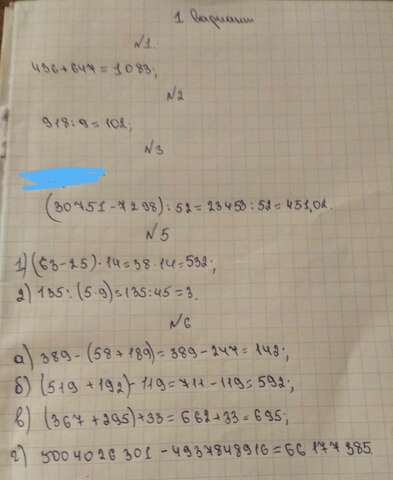 1 Вариант
№1
436+647=1083;
№2
918:9=102;
№3
(30751-7298):52=23453:52=451,02.
№5
1)(63-25)·14=38·14=532;
2)135:(5·9)=135:45=3.
№6
а) 389-(58+189)=389-247=142;
б) (519+192)-119=711-119=592;
в) (367+295)+33=662+33=695;
г) 5004026301-4937848916=66177385.